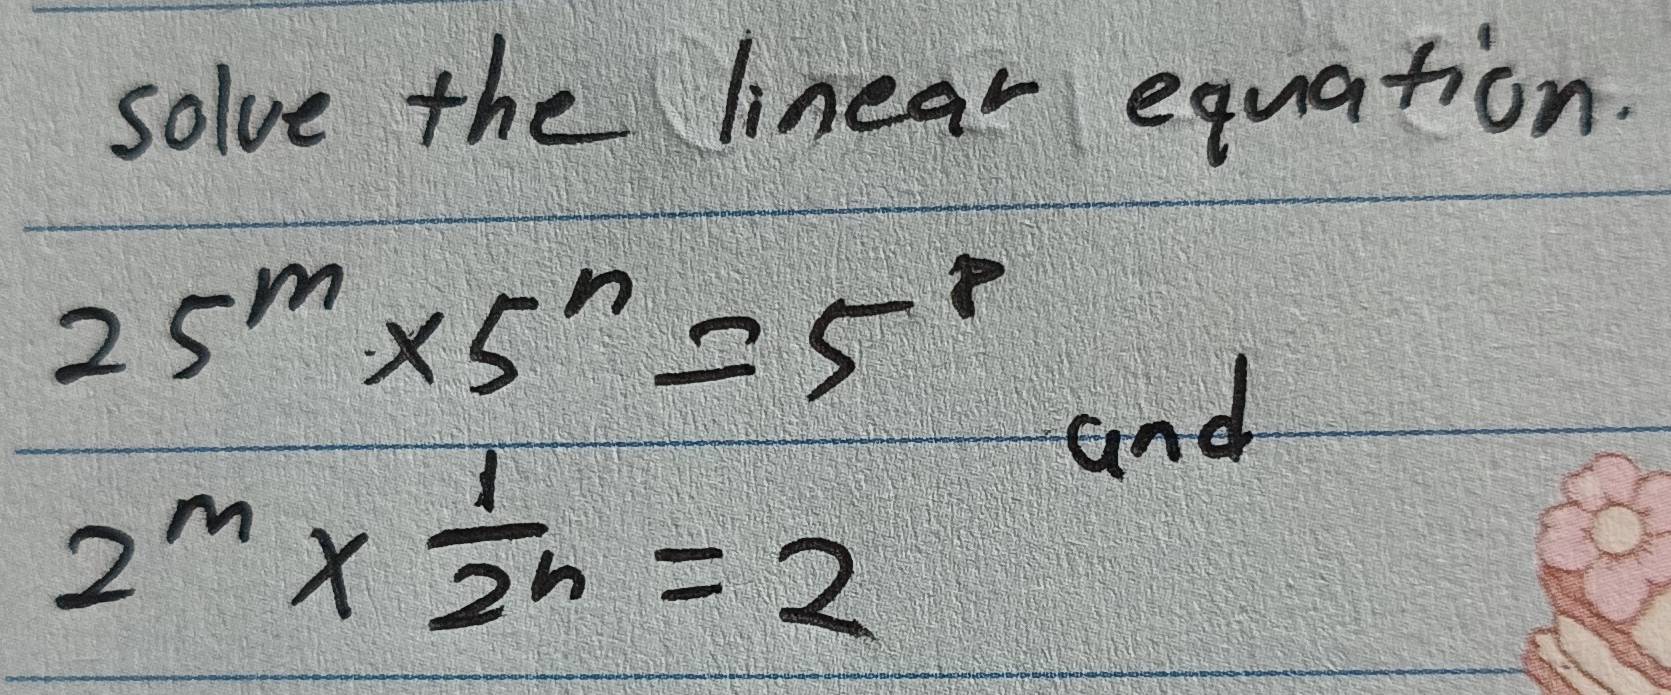 solve the linear equation.
25^m × 5^n = 5^8
and
2^m × 1/2^n = 2